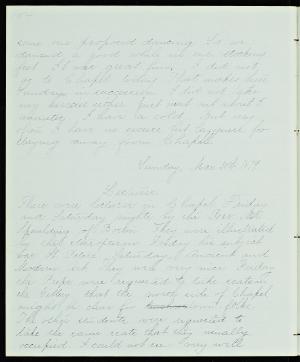 some one proposed dancing. So we
danced a good while in our stocking
feet. It was great fun. I did not
go to Chapel today. That makes two
Sundays in succession. I did not take
my excuse either just went out about
I have a cold. But very
often I have no excuse but laziness for
staying away from Chapel.
Sunday, Mar
Lectures
There were lectures in Chapel Friday
and Saturday nights by the Rev. Mr.
Spaulding of Boston. They were illustrated
by the Friday his subject
was St. Peters, Saturday, Ancient and
Modern art they were very nice. Friday
the Preps were requested to take seats in
the Gallery that the north side of Chapel
might be clear for town folks.
The other students were requested to
take the same seats that they usually
occupied. I could not see very well